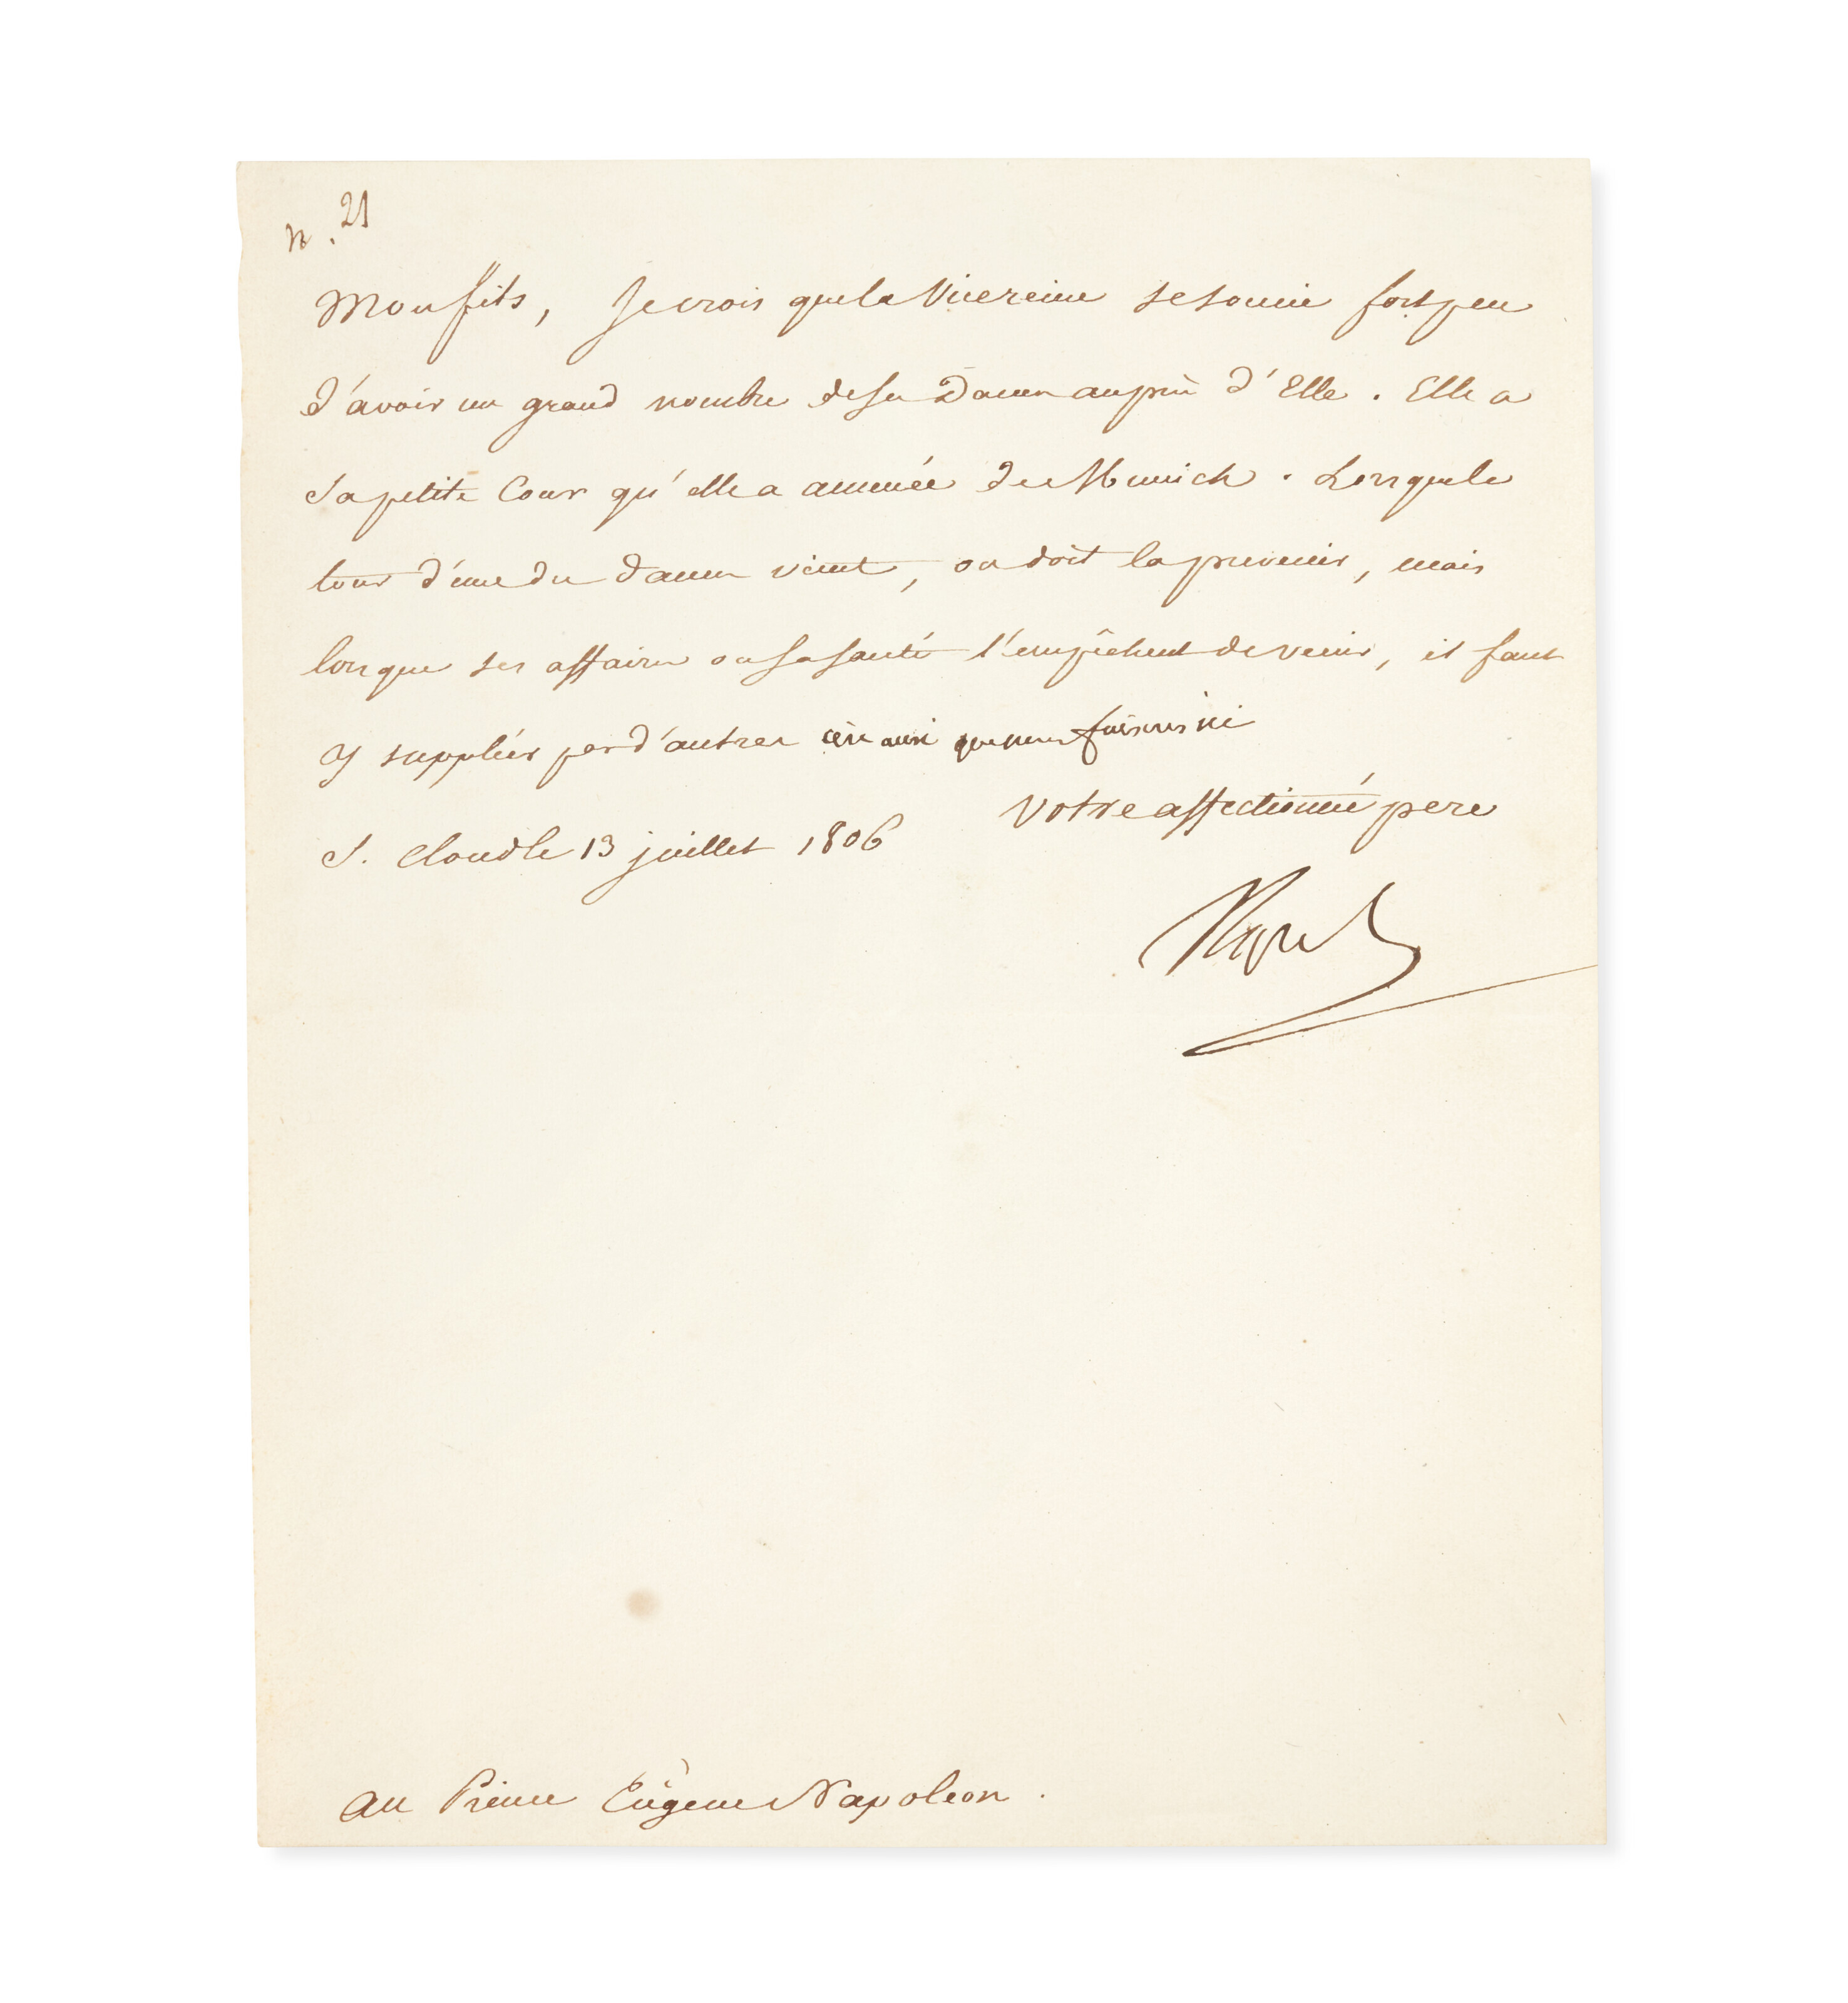 n. 21
Mon fils, Je crois que la Vicereine se soucie fort peu
d'avoir un grand nombre de ses Dames auprès d'Elle. Elle a
sa petite Cour qu'elle a amenée de Munich. Lorsque le
tour d'une des dames vient, on doit la prevenir, mais
lorsque ses affaires ou sa santé l'empêchent de venir, il faut
y suppléer par d'autres c'est ainsi que nous faisons ici
Votre affectionné pere
S. Cloud le 13 juillet 1806
Napol
Au Prince Eugène Napoleon.